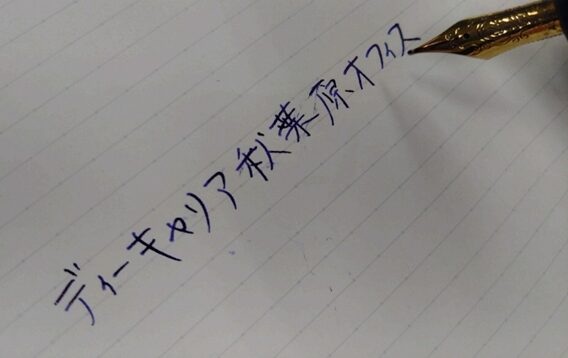 ディーキャリア秋葉原オフィス